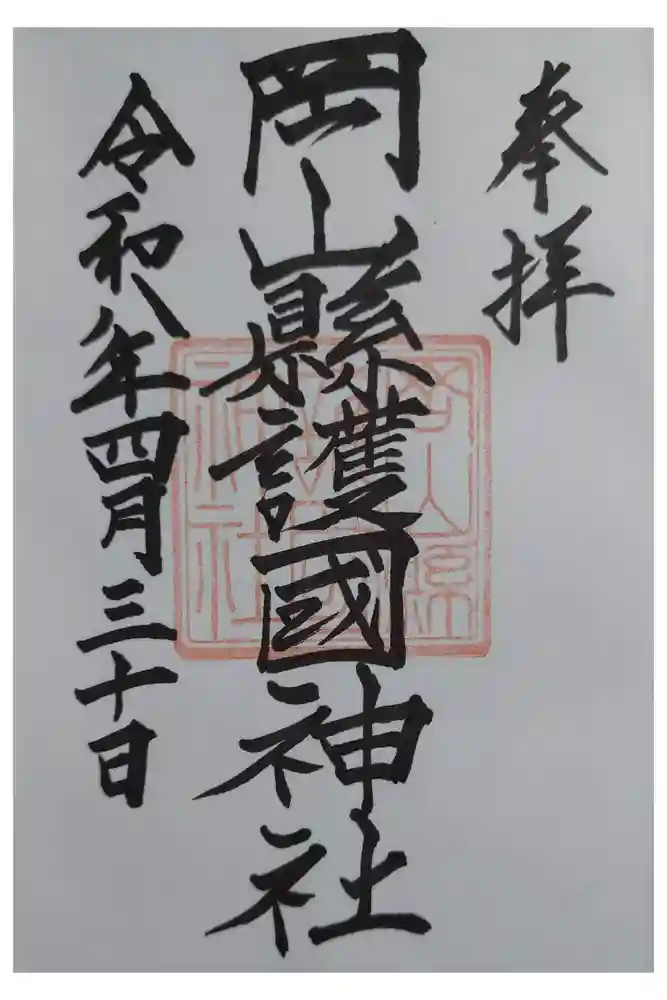 奉拝
岡山縣護國神社
令和八年四月三十日